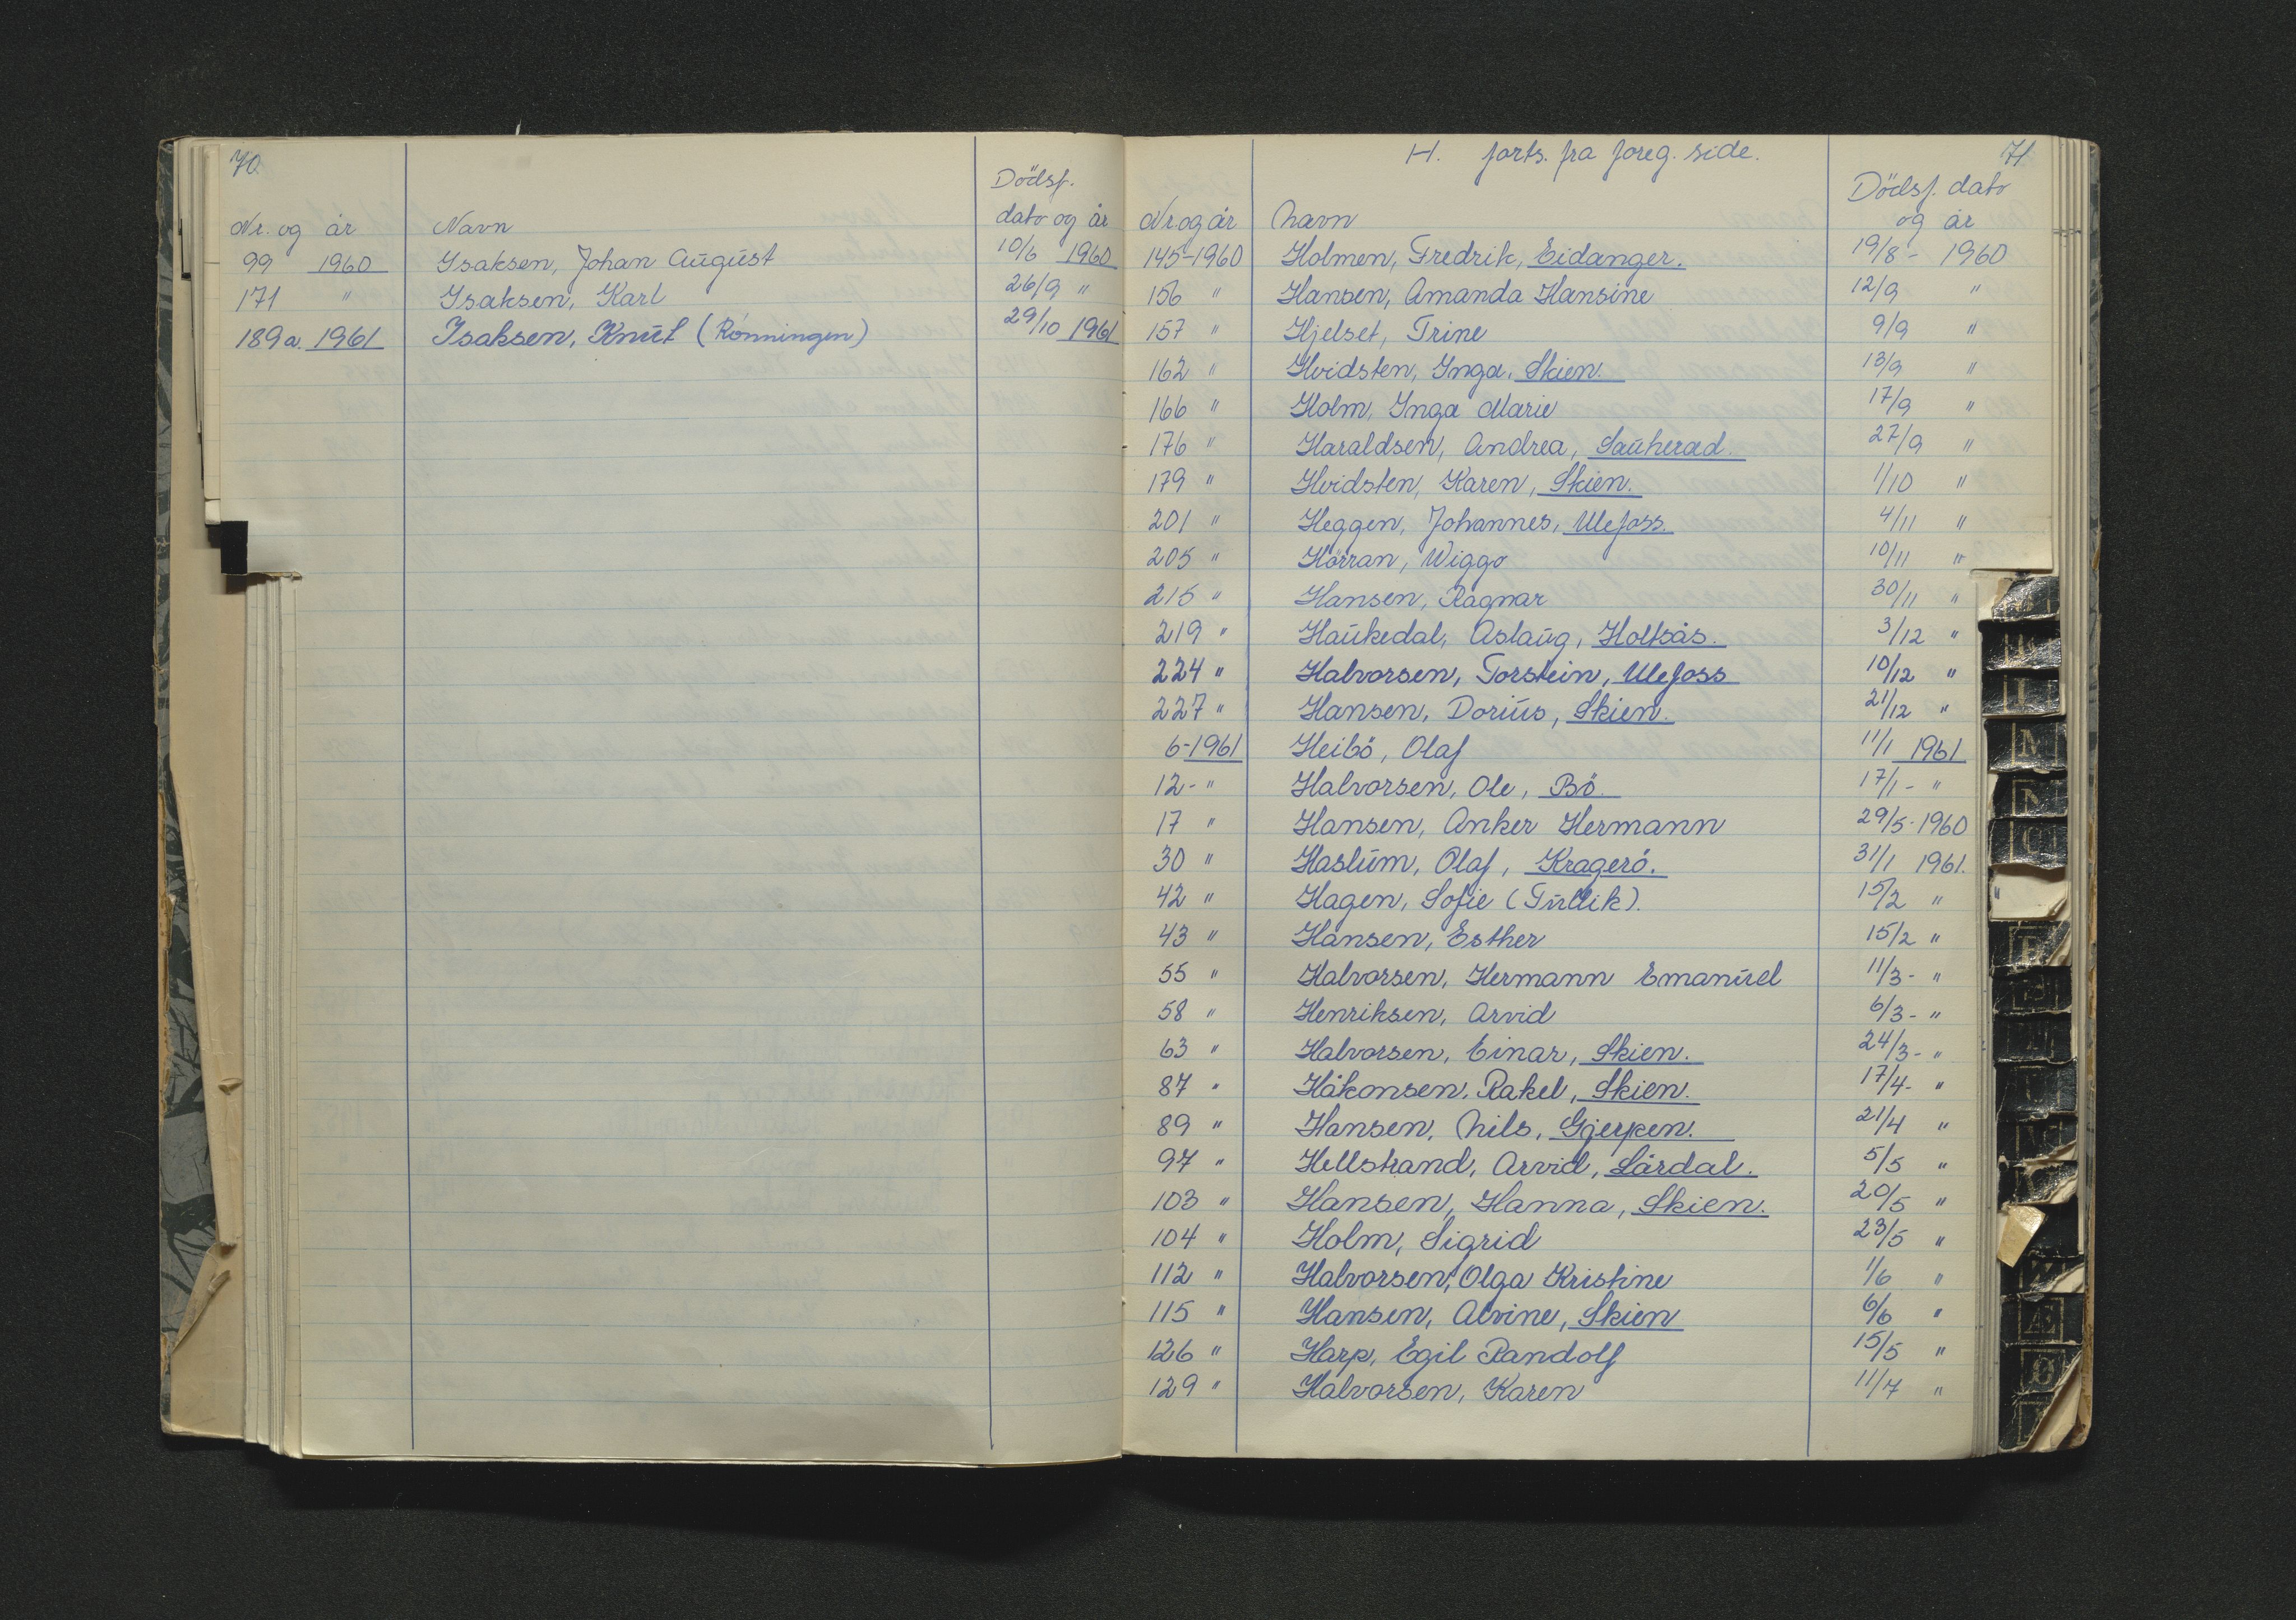 70.
Dödsf.
Nr. og år Navn dato og år
99 1960 Isaksen, Johan August 10/6 1960
171 " Isaksen, Karl 26/9 "
189a. 1961 Isaksen, Knut (Rönningen) 29/10 1961
H. forts. fra foreg. side. 71
Dödsf. dato
Nr. og år Navn og år
145-1960 Holmen, Fredrik, Eidanger. 19/8 - 1960
156 " Hansen, Amanda Hansine 12/9 "
157 " Hjelset, Trine 9/9 "
162 " Hvidsten, Inga, Skien. 13/9 "
166 " Holm, Inga Marie 17/9 "
176 " Haraldsen, Andrea, Sauherad. 27/9 "
179 " Hvidsten, Karen, Skien. 1/10 "
201 " Heggen, Johannes, Ulefoss. 4/11 "
205 " Hörran, Wiggo 10/11 "
215 " Hansen, Ragnar 30/11 "
219 " Haukedal, Aslaug, Holtsås. 3/12 "
224 " Halvorsen, Torstein, Ulefoss 10/12 "
227 " Hansen, Dorius, Skien. 21/12 "
6-1961 Heibö, Olaf 11/1 1961
12-" Halvorsen, Ole, Bö. 17/1 - "
17 " Hansen, Anker Hermann 29/5-1960
30 " Haslum, Olaf, Kragerö. 31/1 1961.
42 " Hagen, Sofie (Tullik). 15/2 "
43 " Hansen, Esther 15/2 "
55 " Halvorsen, Hermann Emanuel 11/3 - "
58 " Henriksen, Arvid 6/3 - "
63 " Halvorsen, Einar, Skien. 24/3 - "
87 " Håkonsen, Rakel, Skien. 17/4 - "
89 " Hansen, Nils, Gjerpen. 21/4 "
97 " Hellstrand, Arvid, Lårdal. 5/5 "
103 " Hansen, Hanna, Skien. 20/5 "
104 " Holm, Sigrid 23/5 "
112 " Halvorsen, Olga Kristine 1/6 "
115 " Hansen, Alvine, Skien 6/6 "
126 " Harp, Egil Randolf 15/5 "
129 " Halvorsen, Karen 11/7 "
M
N
Æ
Ø